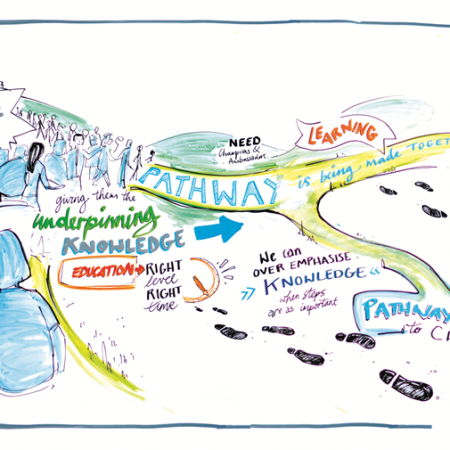 NEED
Champions &
Ambassadors
LEARNING
PATHWAY is being made TOGET
giving them the
underpinning
KNOWLEDGE
EDUCATION → RIGHT
level
RIGHT
time
We can
OVER EMPHASISE
» KNOWLEDGE «
when steps
are as important
PATHWAY
to C